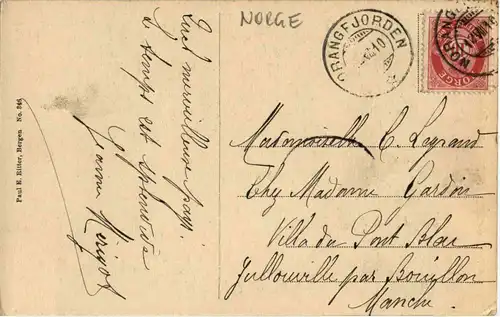 NORGE
Quel merveilleux pays!
le temps est splendide
Jeanne
Paul E. Ritter, Bergen No. 346
NORANGFJORDEN
10
NORGE
Mademoiselle C. Legrand
Chez Madame Gardon
Villa du Pont Blac
Jullouville par Bouillon
Manche.